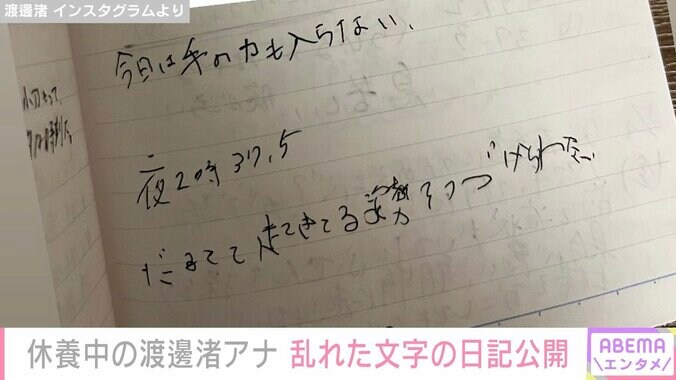 渡邊渚 インスタグラムより
今日は手の力も入らない、
夜2時 37.5
だるくて起きてる姿勢もつづけられない
休養中の渡邊渚アナ 乱れた文字の日記公開
ABEMA
エンタメ